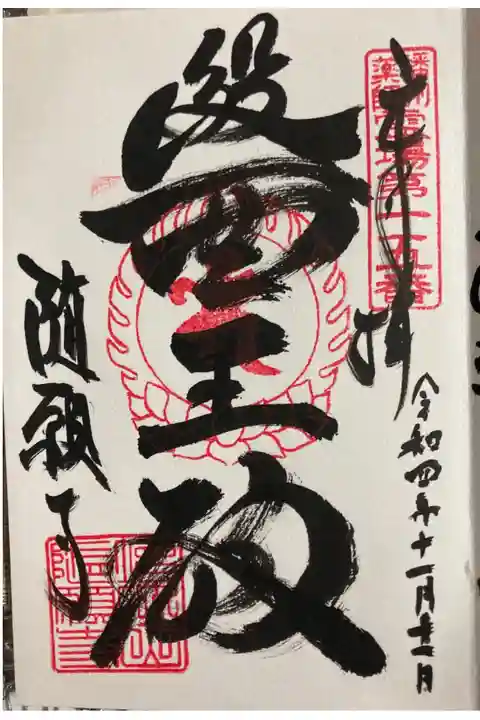 奉拝
播州
薬師霊場第一五番
令和四年十一月十二日
醫王殿
随願寺